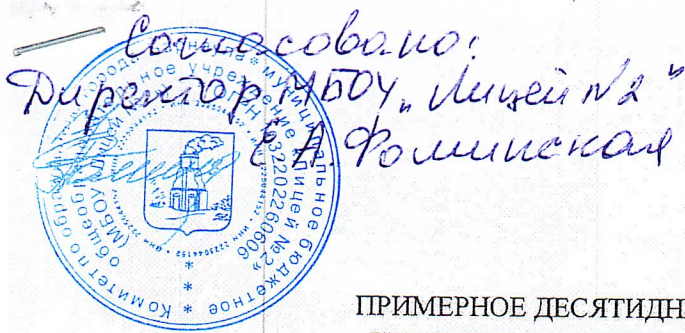 Согласовано:
Директор МБОУ „Лицей №2"
Е.А. Фоминская
Комитет по обр города * муниципальное бюджетное
общеоб учреждение «Лицей №2»
(МБОУ
* * *
ПРИМЕРНОЕ ДЕСЯТИДН